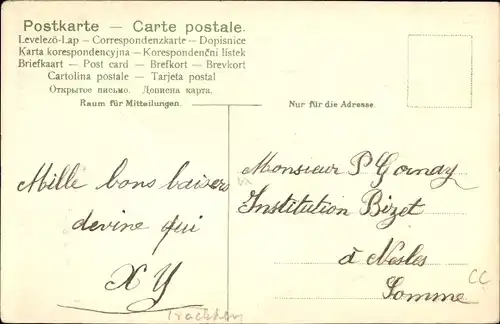 Postkarte — Carte postale.
Levelező-Lap – Correspondenzkarte – Dopisnice
Karta korespondencyjna – Korespondenční lístek
Briefkaart – Post card – Brefkort – Brevkort
Cartolina postale – Tarjeta postal
Открытое письмо. Дописна карта.
Raum für Mitteilungen.
Nur für die Adresse.
Mille bons baisers
devine qui
X Y
Monsieur P Gornay
Institution Bizet
à Nesles
Somme
CC